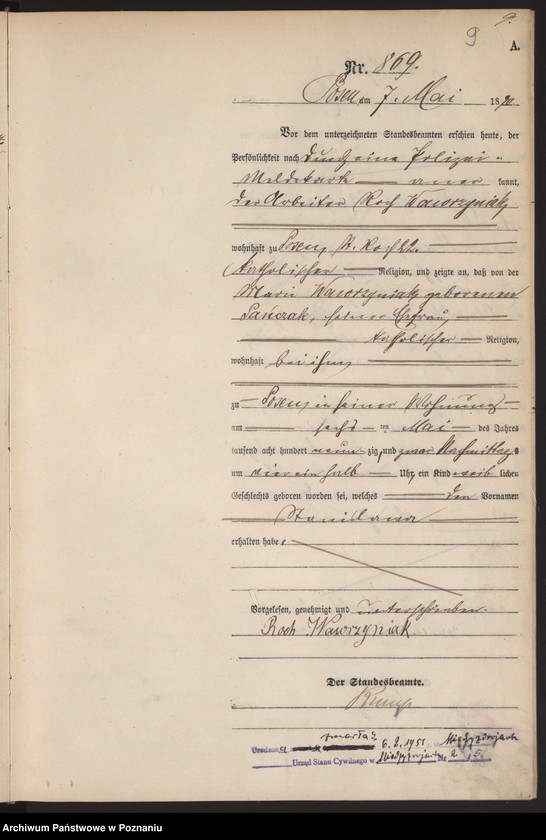 9
A.
Nr. 869.
Posen am 7. Mai 1890
Vor dem unterzeichneten Standesbeamten erschien heute, der
Persönlichkeit nach durch eine Polizei-
Meldekarte aner kannt,
der Arbeiter Roch Wawrzyniak
wohnhaft zu Posen, St. Roch 22.
katholischer Religion, und zeigte an, daß von der
Marie Wawrzyniak geborenen
Sańczak, seiner Ehefrau,
katholischer Religion,
wohnhaft bei ihm
zu Posen, in seiner Wohnung
am sechs ten Mai des Jahres
tausend acht hundert neun zig, und zwar Nachmittags
um vier ein halb Uhr, ein Kind weib lichen
Geschlechts geboren worden sei, welches den Vornamen
Stanislawa
erhalten habe.
Vorgelesen, genehmigt und unterschrieben.
Roch Wawrzyniak.
Der Standesbeamte.
zmarła
6.2.1951 Międzyzdrojach
Urząd Stanu Cywilnego w Międzyzdrojach Nr 2
Archiwum Państwowe w Poznaniu